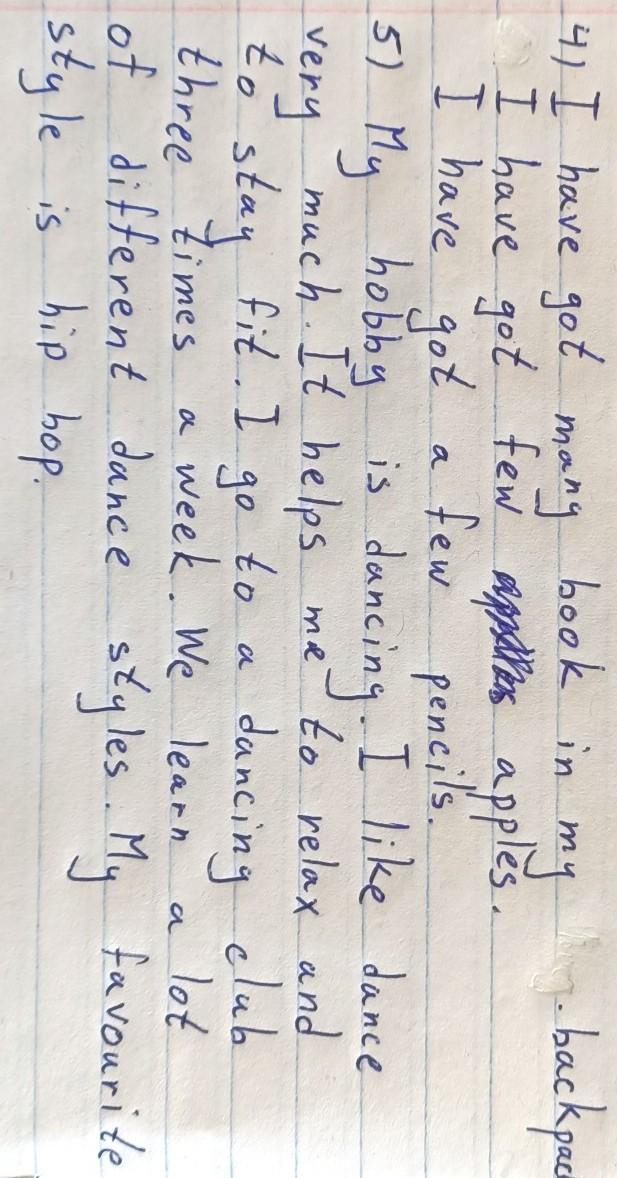 4) I have got many book in my . backpac
I have got few apples.
I have got a few pencils.
5) My hobby is dancing. I like dance
very much. It helps me to relax and
to stay fit. I go to a dancing club
three times a week. We learn a lot
of different dance styles. My favourite
style is hip hop.